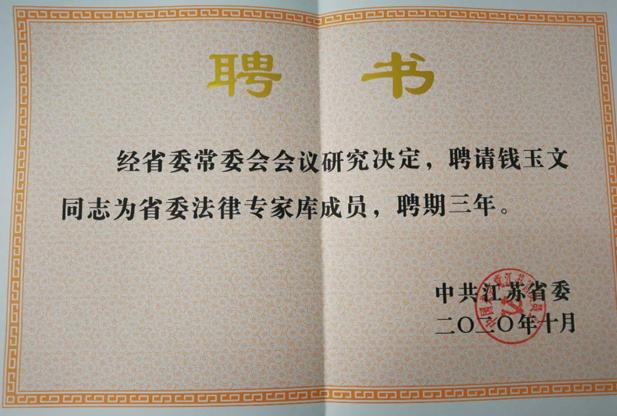 聘书
经省委常委会会议研究决定，聘请钱玉文
同志为省委法律专家库成员，聘期三年。
中共江苏省委
二〇二〇年十月